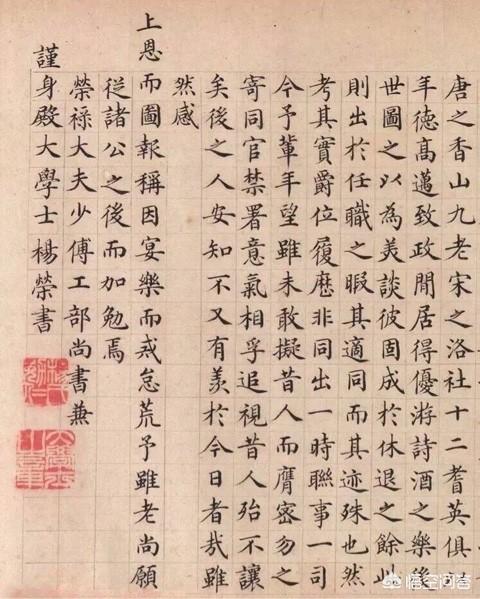 唐之香山九老宋之洛社十二耆英俱以
年德高邁致政閒居得優游詩酒之樂後
世圖之以為美談彼固成於休退之餘此
則出於任職之暇其適同而其迹殊也然
考其實爵位履歷非同出一時聯事一司
今予輩年望雖未敢擬昔人而膺密勿之
寄同官禁署意氣相孚追視昔人殆不讓
矣後之人安知不又有羨於今日者哉雖
然感
上恩而圖報稱因宴樂而戒怠荒予雖老尚願
從諸公之後而加勉焉
榮祿大夫少傅工部尚書兼
謹身殿大學士楊榮書
悟空问答